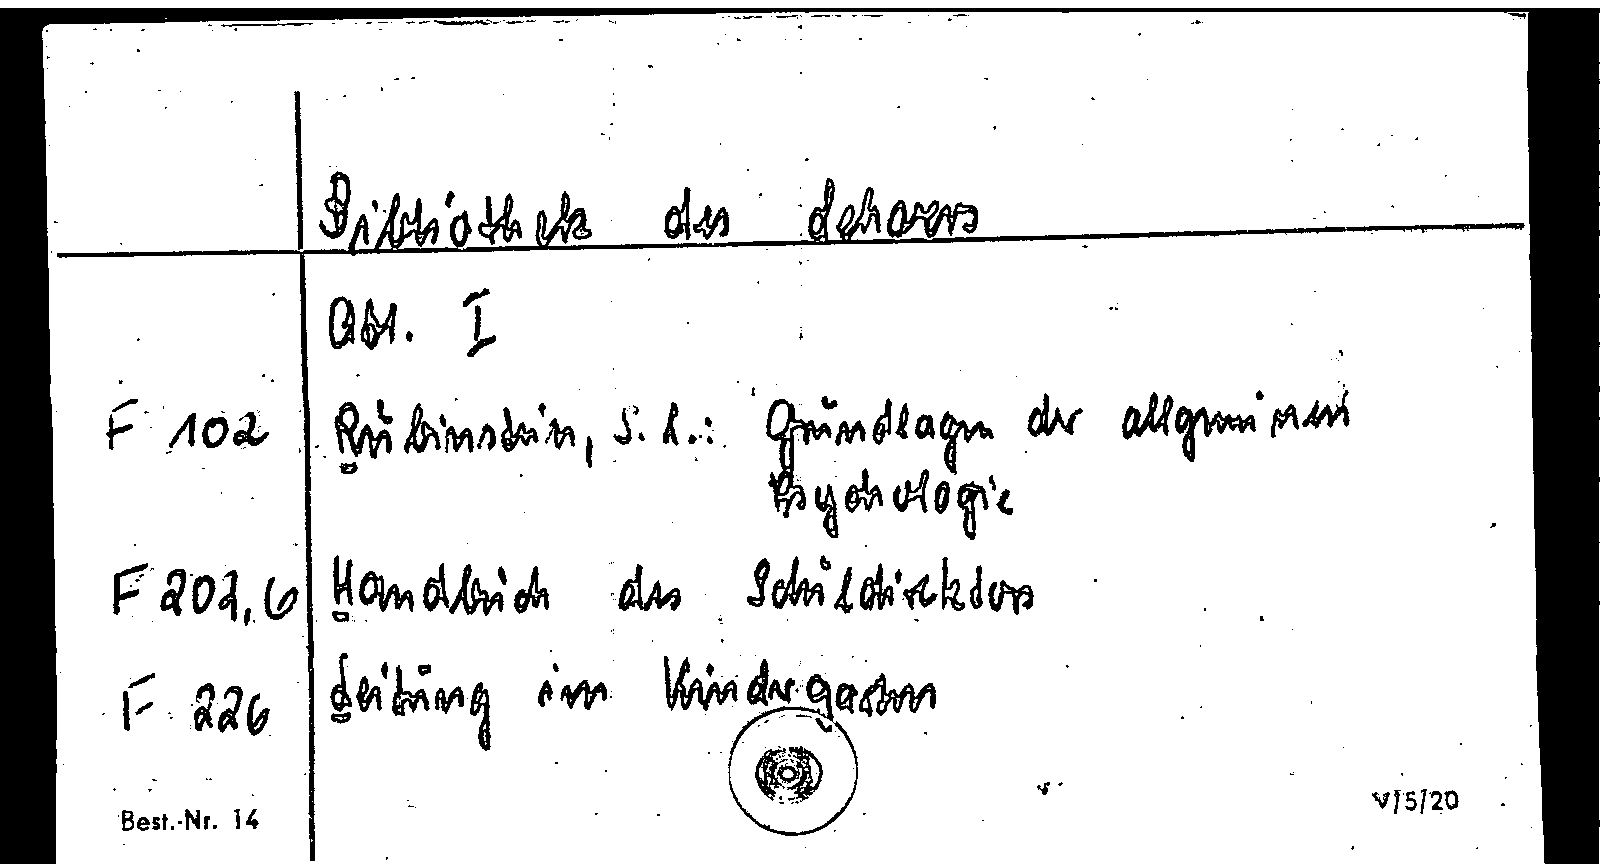 Bibliothek des Lehrers
Abt. I
F 102 Rubinstein, S. L.: Grundlagen der allgemeinen
Psychologie
F 202,6 Handbuch des Schuldirektors
F 226 Leitung im Kindergarten
Best.-Nr. 14
V/5/20